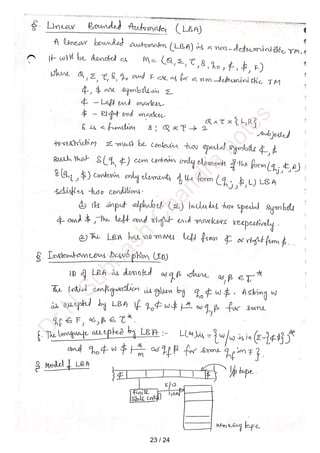 § Linear Bounded Automator (LBA)
A linear bounded automaton (LBA) is a non-deterministic TM.
it will be denoted as M = (Q, Σ, τ, δ, q₀, ¢, $, F)
where Q, Σ, τ, δ, q₀ and F are as for a non-deterministic TM
¢, $ are symbols in Σ
¢ - Left end marker
$ - Right end marker
δ is a function δ: Q × τ → 2^(Q × τ × {L,R}) subjected
to restriction Σ must be contain two special symbols ¢, $
such that δ(q, ¢) can contain only elements of the form (qj, ¢, R)
δ(qi, $) contain only elements of the form (qj, $, L) LBA
satisfies two conditions.
① its input alphabet (Σ) includes two special symbols
¢ and $, the left and right end markers respectively.
② The LBA has no moves left from ¢ or right from $.
§ Instantaneous Description (ID)
ID of LBA is denoted αqβ where α, β ∈ τ*
The initial configuration is given by q₀ ¢ w $. A string w
is accepted by LBA if q₀ ¢ w $ ⊢* α qf β for some
qf ∈ F, α, β ∈ τ*.
§. The language accepted by LBA :- L(M) is = {w / w is in (Σ-{¢,$})*
and q₀ ¢ w $ ⊢*M α qf β for some qf in F}.
§ Model of LBA
¢ $ I/p tape.
Finite
State cntrl
R/W
head
working tape
23 / 24